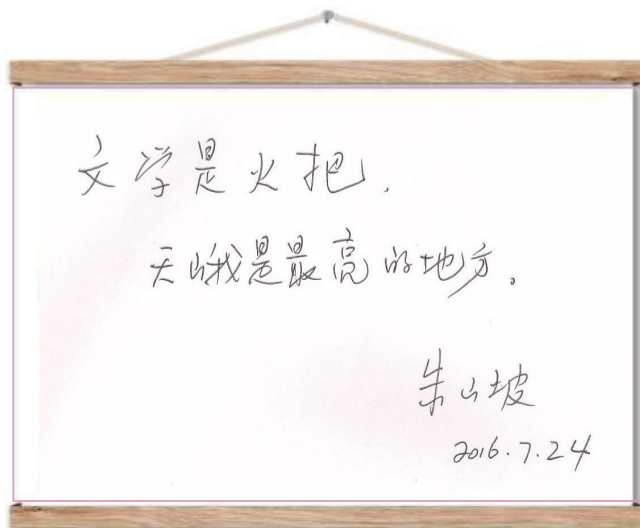 文学是火把,
天峨是最高的地方。
朱山坡
2016.7.24